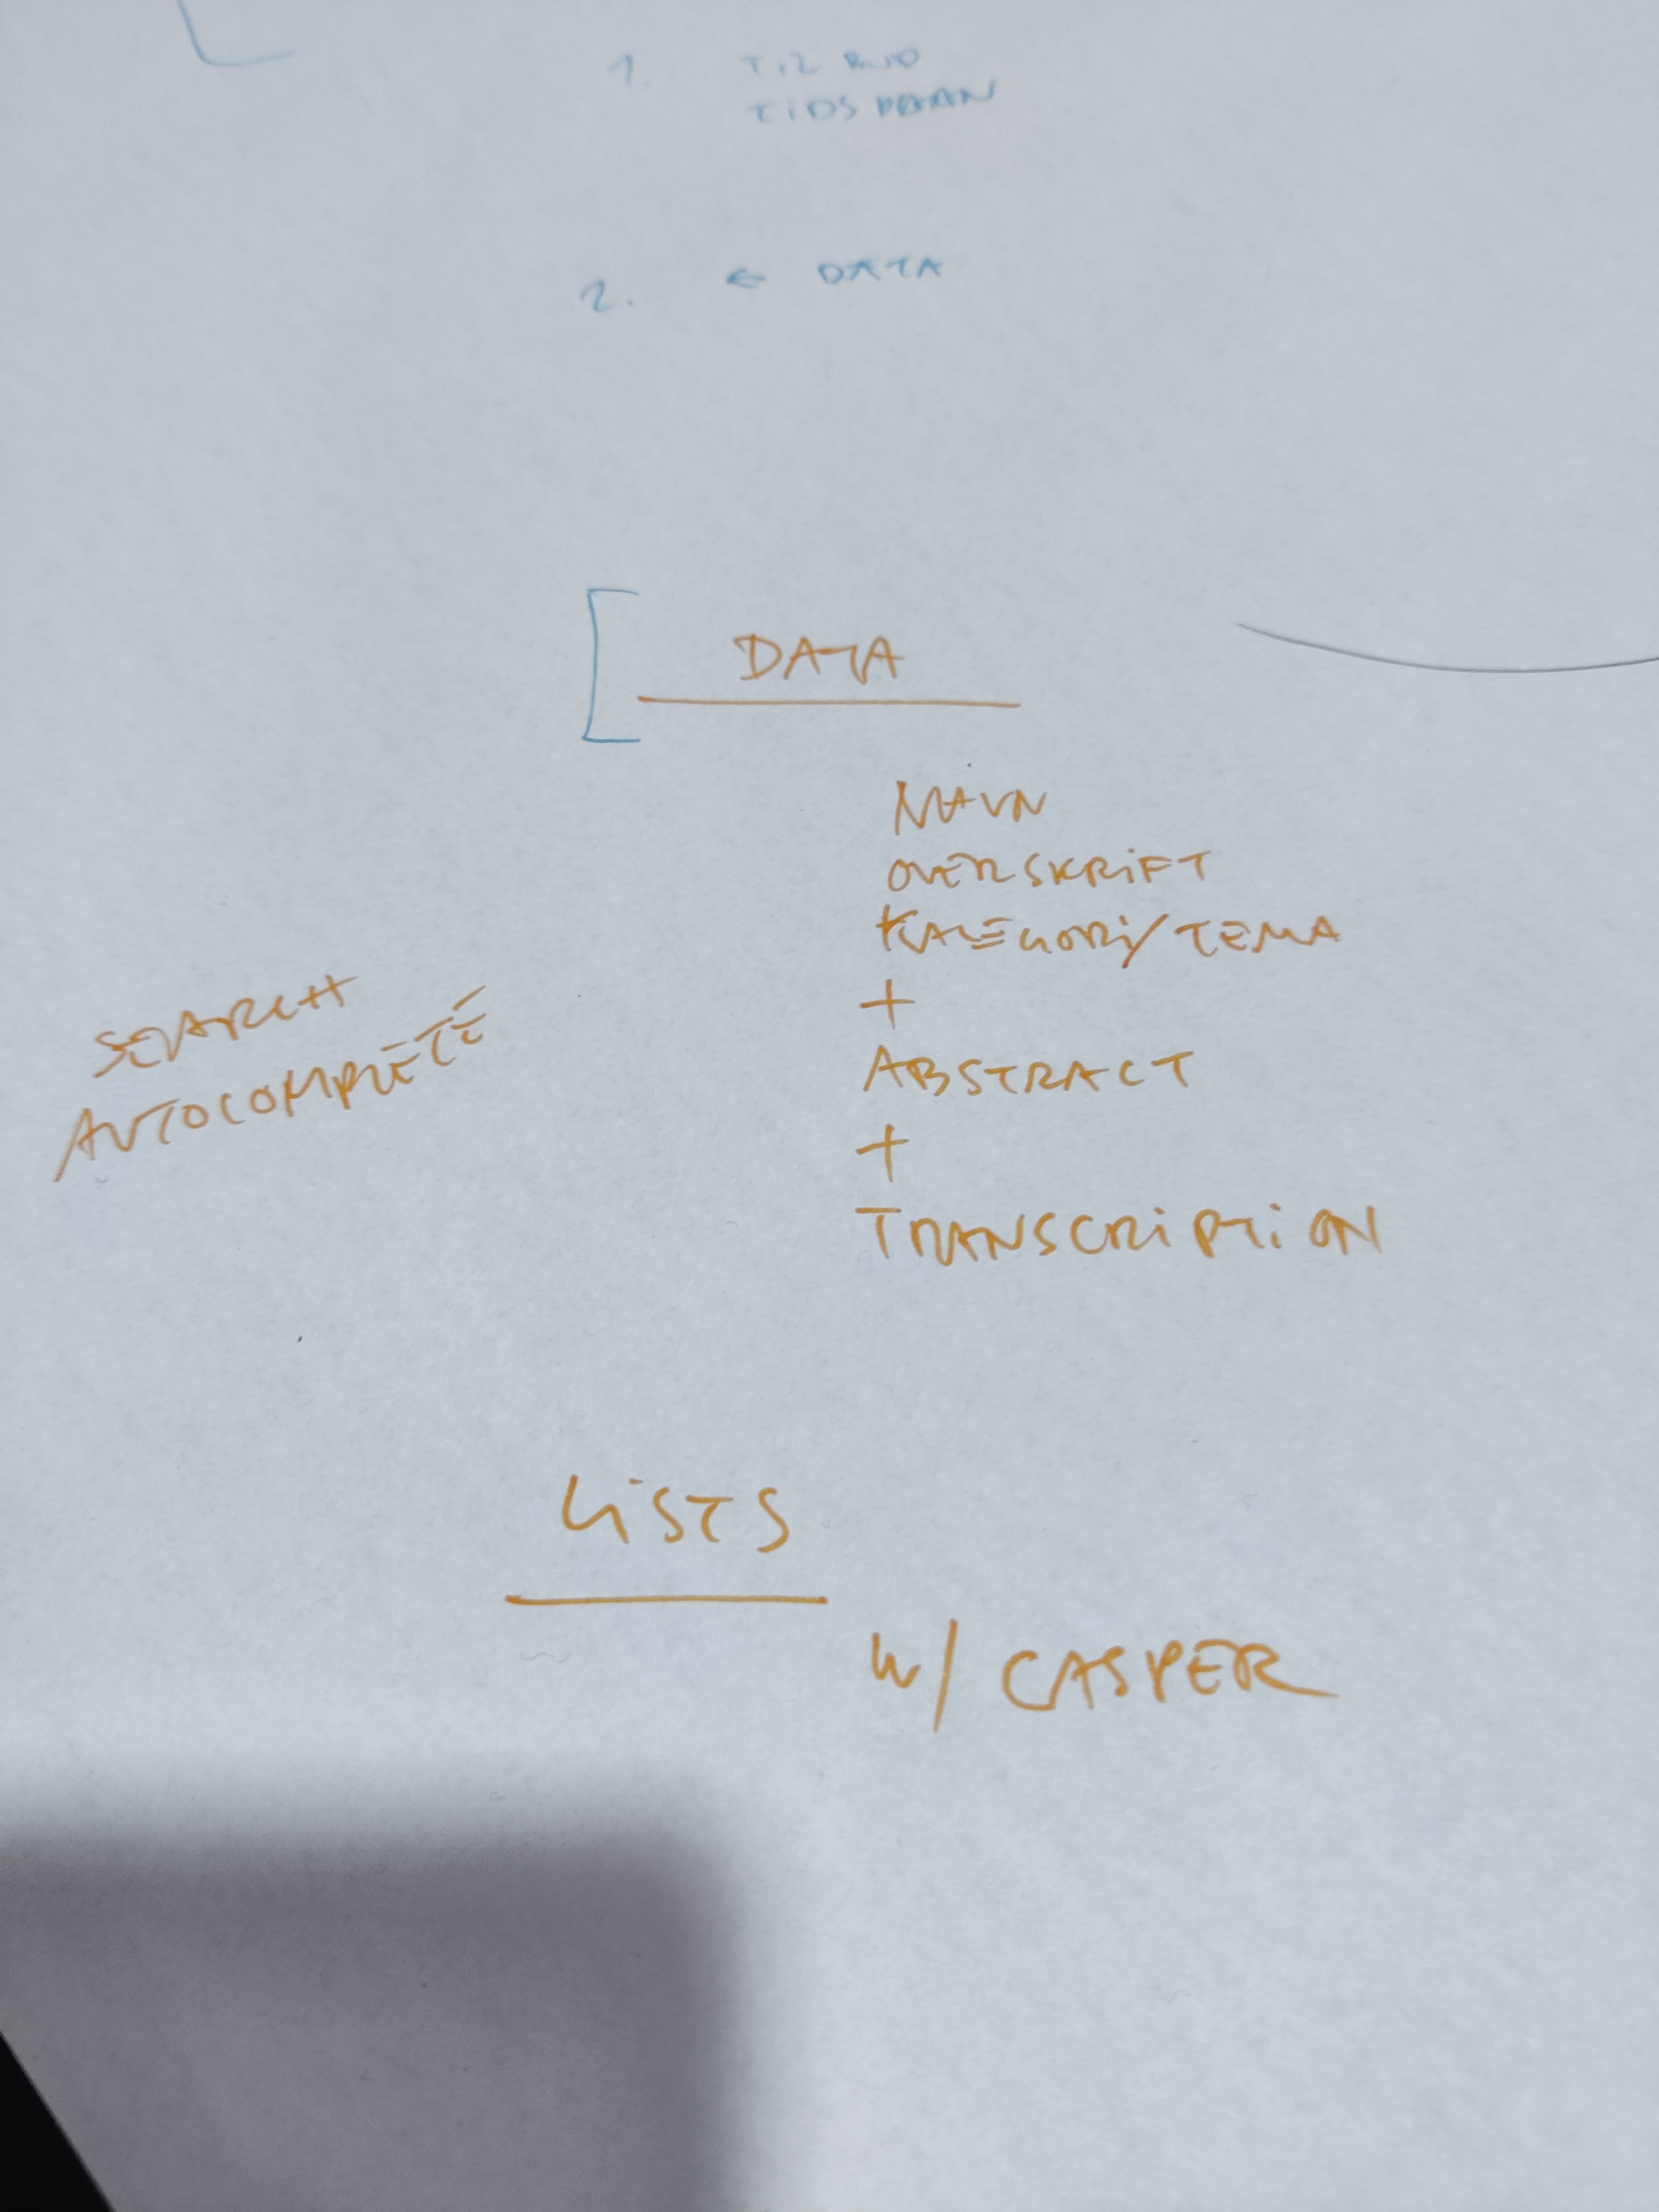 1. TIL
TIDS
2. ← DATA
DATA
NAVN
OVERSKRIFT
KATEGORI/TEMA
+
ABSTRACT
+
TRANSCRIPTION
SEARCH
AUTOCOMPLETE
LISTS
W/ CASPER